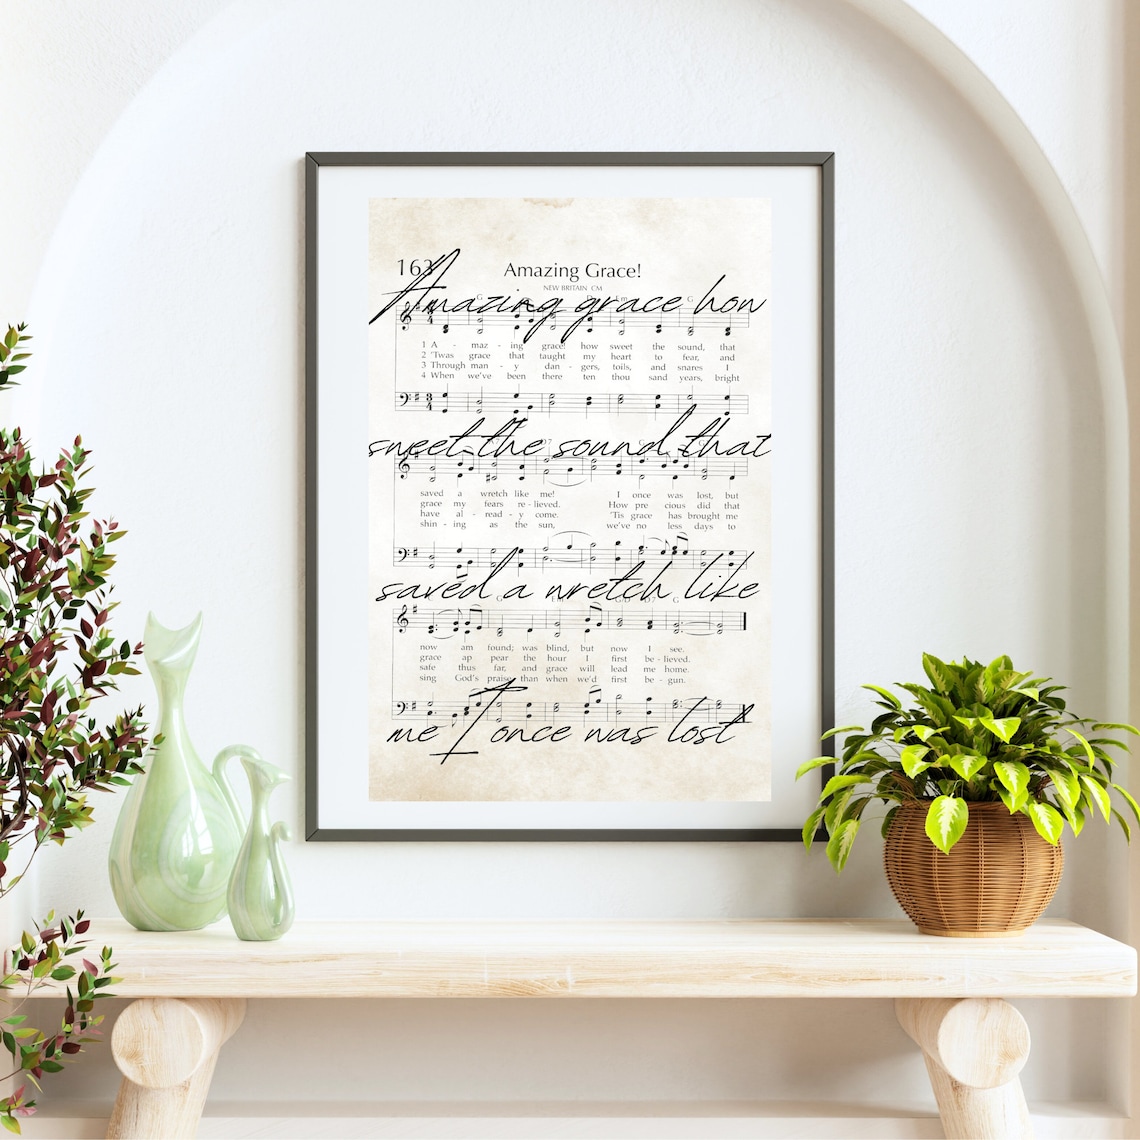 163
Amazing Grace!
NEW BRITAIN CM
Amazing grace how
1 A - maz - ing grace! how sweet the sound, that
2 'Twas grace that taught my heart to fear, and
3 Through man - y dan - gers, toils, and snares I
4 When we've been there ten thou sand years, bright
sweet the sound that
saved a wretch like me! I once was lost, but
grace my fears re - lieved. How pre cious did that
have al - read - y come. 'Tis grace has brought me
shin - ing as the sun, we've no less days to
saved a wretch like
now am found; was blind, but now I see.
grace ap pear the hour I first be - lieved.
safe thus far, and grace will lead me home.
sing God's praise than when we'd first be - gun.
me I once was lost